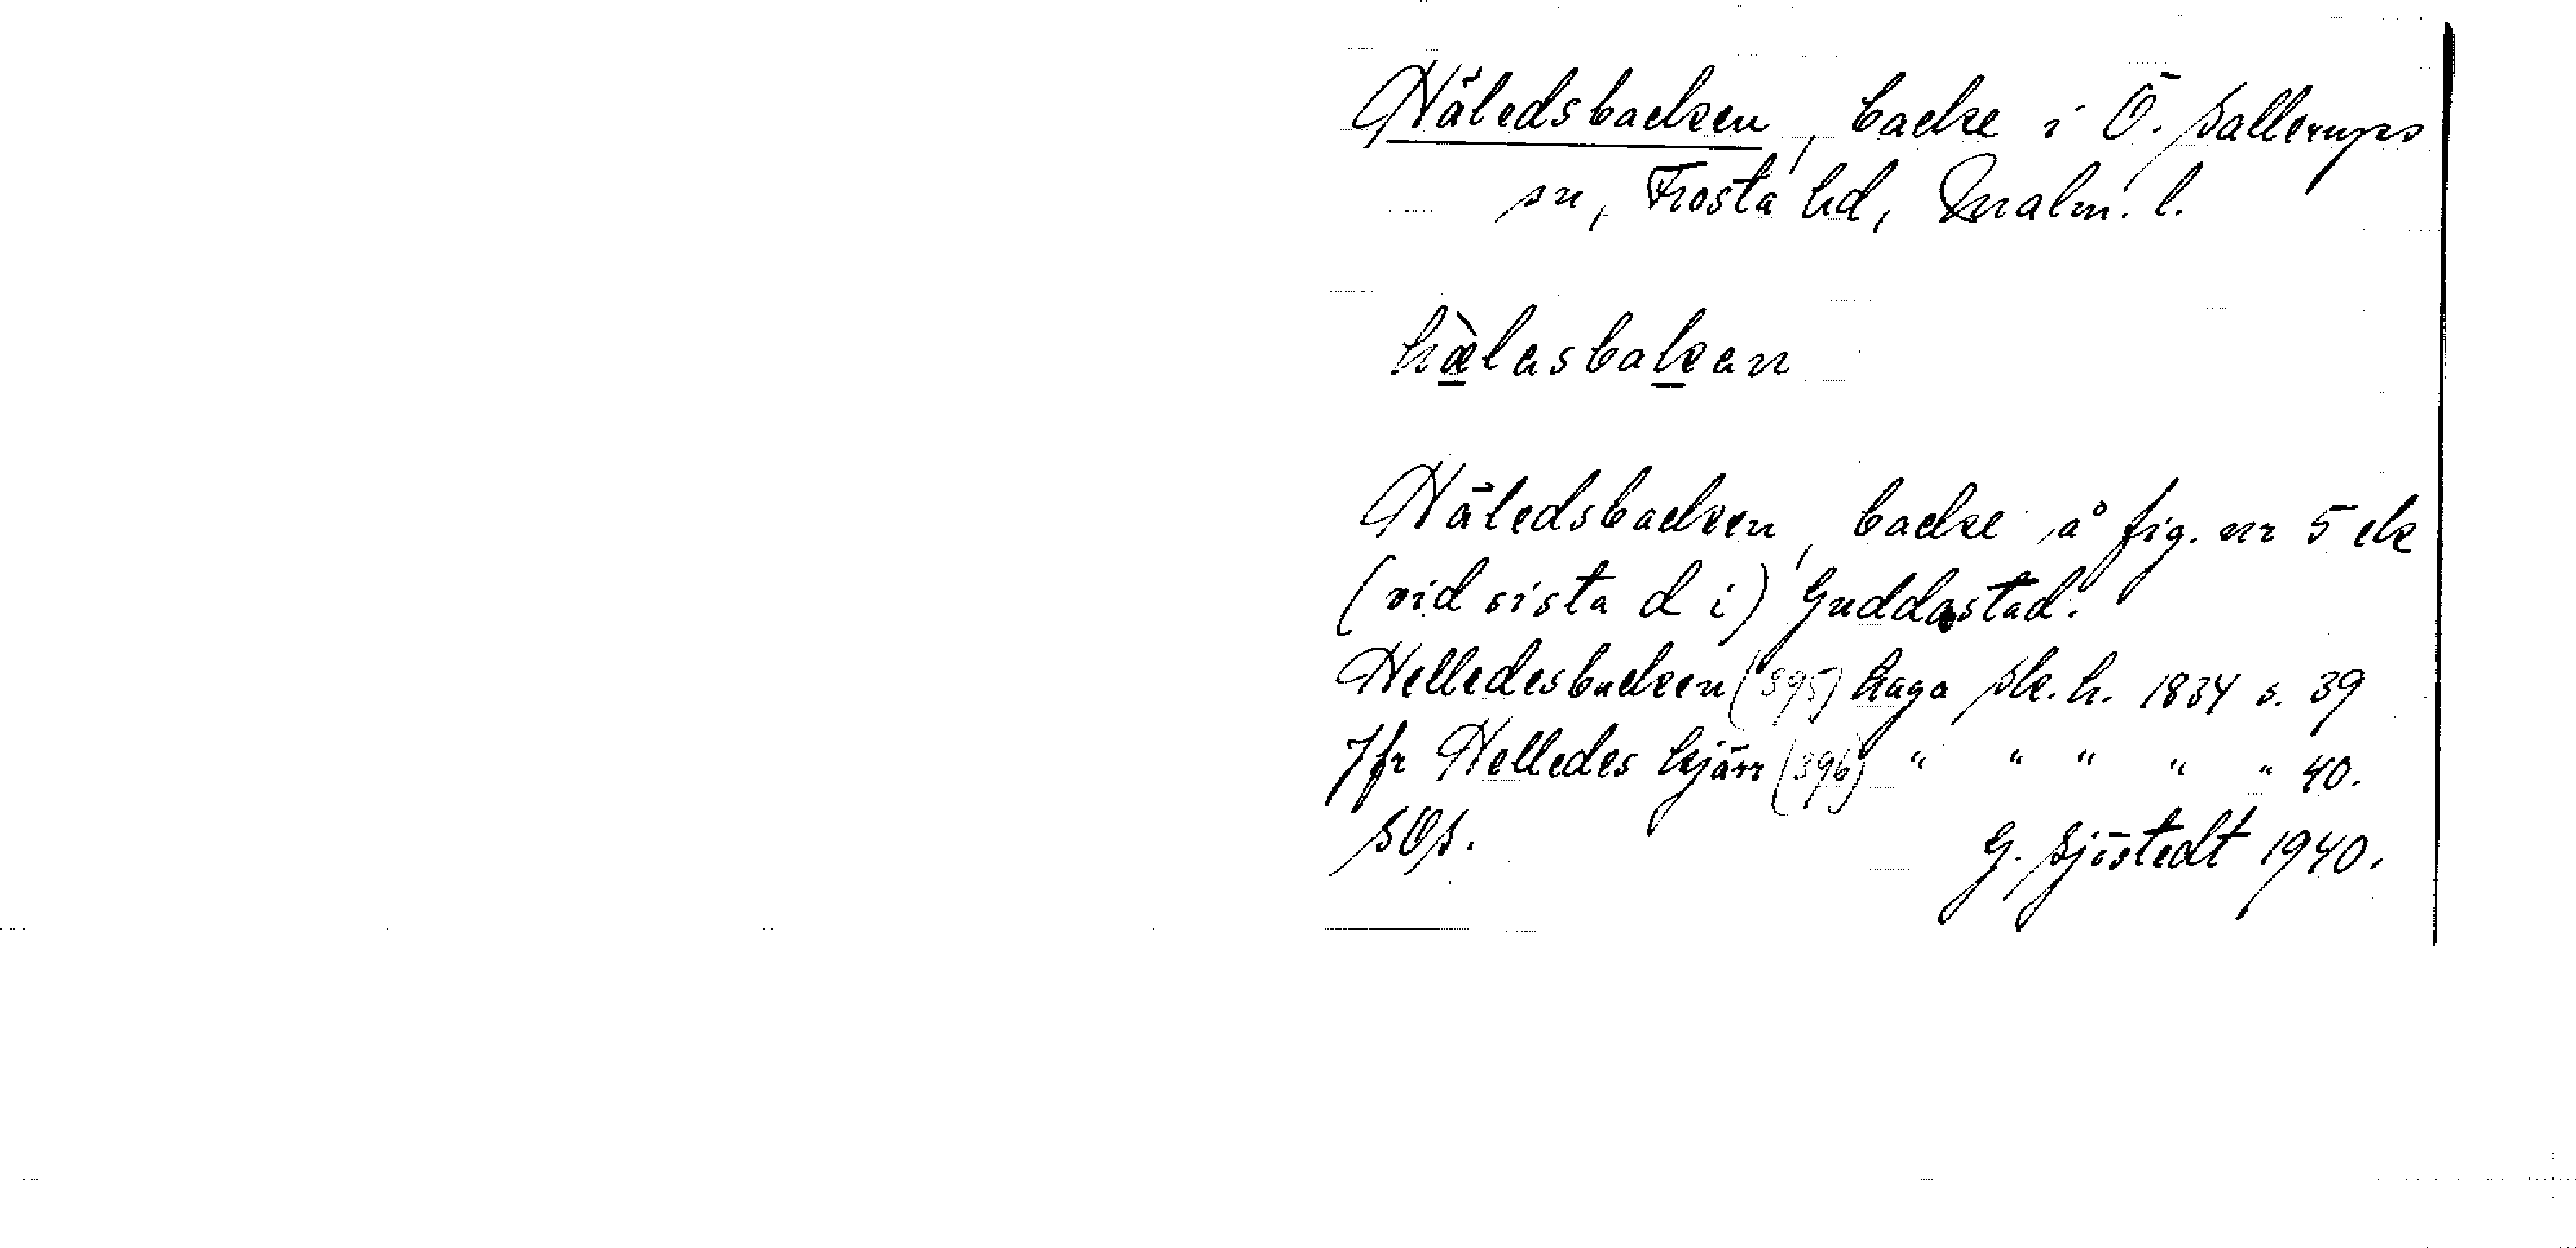 Häledsbacken, backe i Ö. Sallerups
sn, Frosta hd, Malm. l.
hæ̀lasbakan
Häledsbacken, backe å fig. nr 5 ek
(vid sista d i) Guddastad.
Helledesbacken (395) haga sk. h. 1834 s. 39
Jfr Helledes kjärr (396) " " " " " 40.
SOS.
G. Sjöstedt 1940.